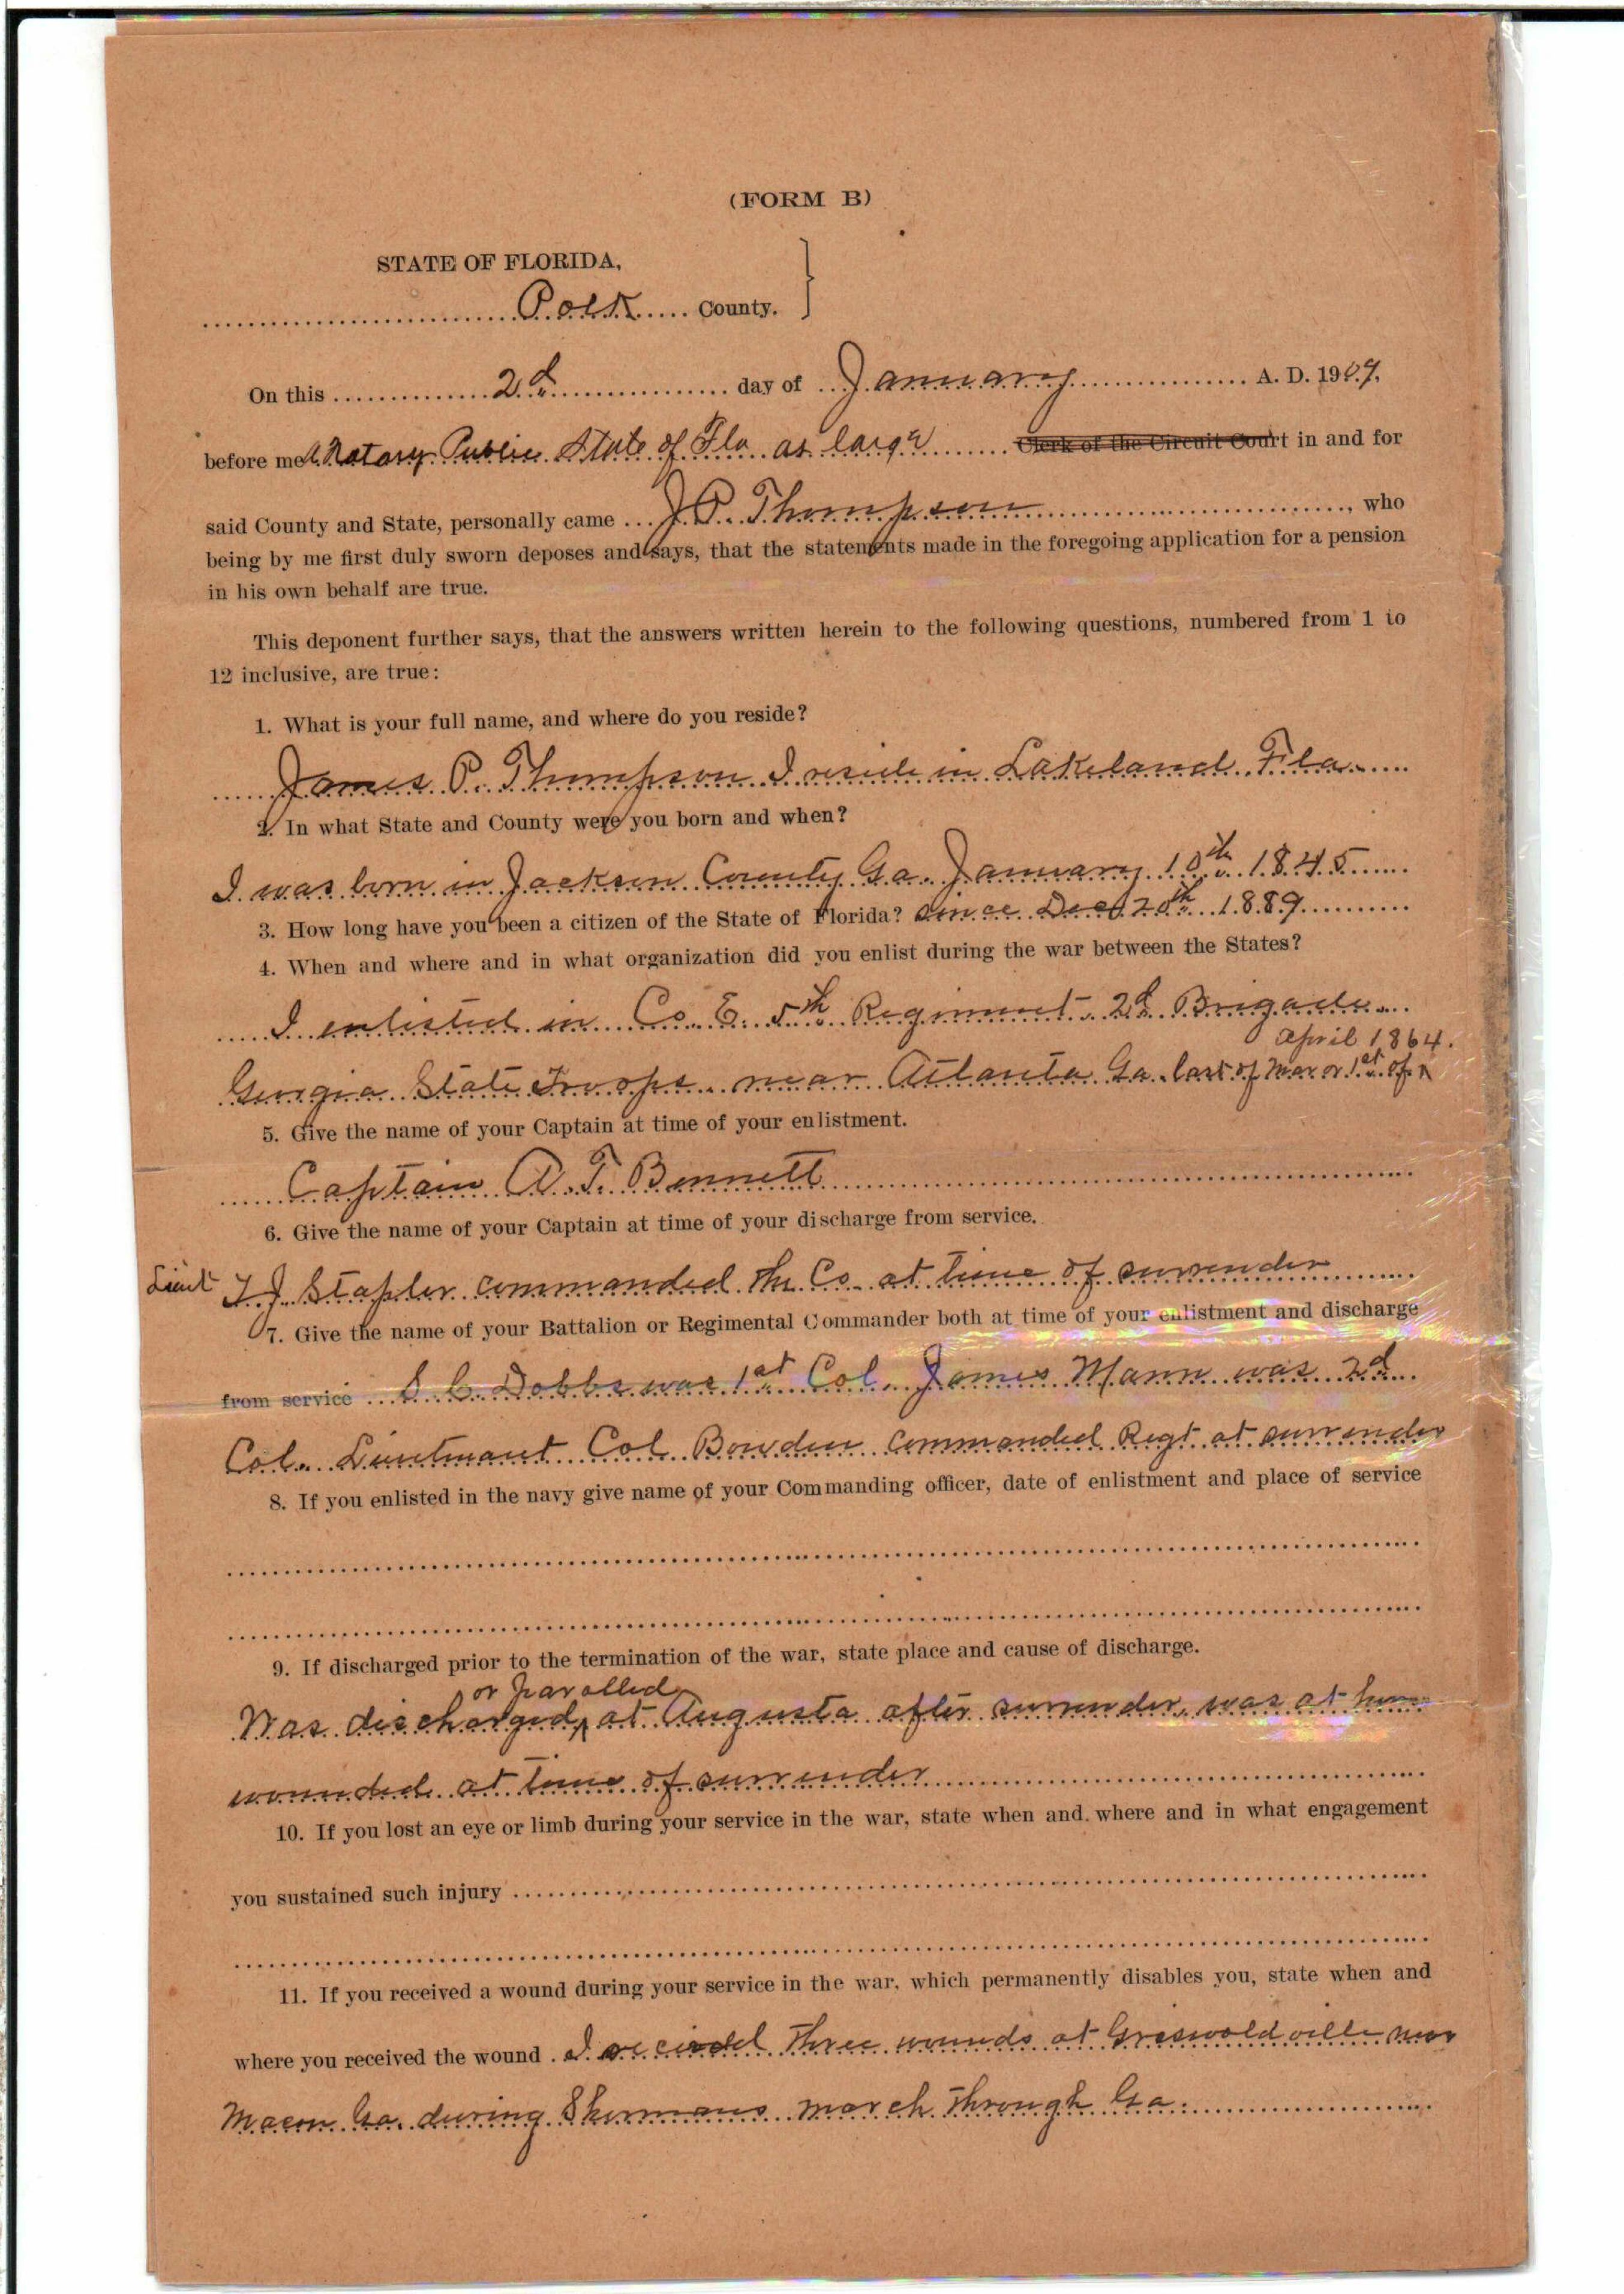 (FORM B)
STATE OF FLORIDA,
Polk County.
On this 2d day of January A. D. 1909.
before me A Notary Public State of Fla at large Clerk of the Circuit Court in and for
said County and State, personally came J. P. Thompson, who
being by me first duly sworn deposes and says, that the statements made in the foregoing application for a pension
in his own behalf are true.
This deponent further says, that the answers written herein to the following questions, numbered from 1 to
12 inclusive, are true:
1. What is your full name, and where do you reside?
James P. Thompson I reside in Lakeland Fla
2. In what State and County were you born and when?
I was born in Jackson County Ga. January 10th 1845
3. How long have you been a citizen of the State of Florida? since Dec 20th 1889
4. When and where and in what organization did you enlist during the war between the States?
I enlisted in Co. E. 5th Regiment 2d Brigade
april 1864.
Georgia State Troops near Atlanta Ga last of Mar or 1st of
5. Give the name of your Captain at time of your enlistment.
Captain A. T. Bennett
6. Give the name of your Captain at time of your discharge from service.
Lieut T. J. Stapler commanded the Co at time of surrender
7. Give the name of your Battalion or Regimental Commander both at time of your enlistment and discharge
from service S. C. Dobbs was 1st Col. James Mann was 2d
Col. Lieutmant Col Bowden Commanded Regt at surrender
8. If you enlisted in the navy give name of your Commanding officer, date of enlistment and place of service
9. If discharged prior to the termination of the war, state place and cause of discharge.
or parolled
Was discharged, at Augusta after surrender, was at home
wounded at time of surrender
10. If you lost an eye or limb during your service in the war, state when and. where and in what engagement
you sustained such injury
11. If you received a wound during your service in the war, which permanently disables you, state when and
where you received the wound. I recieved three wounds at Griswoldville near
Macon Ga. during Shermans march through Ga.